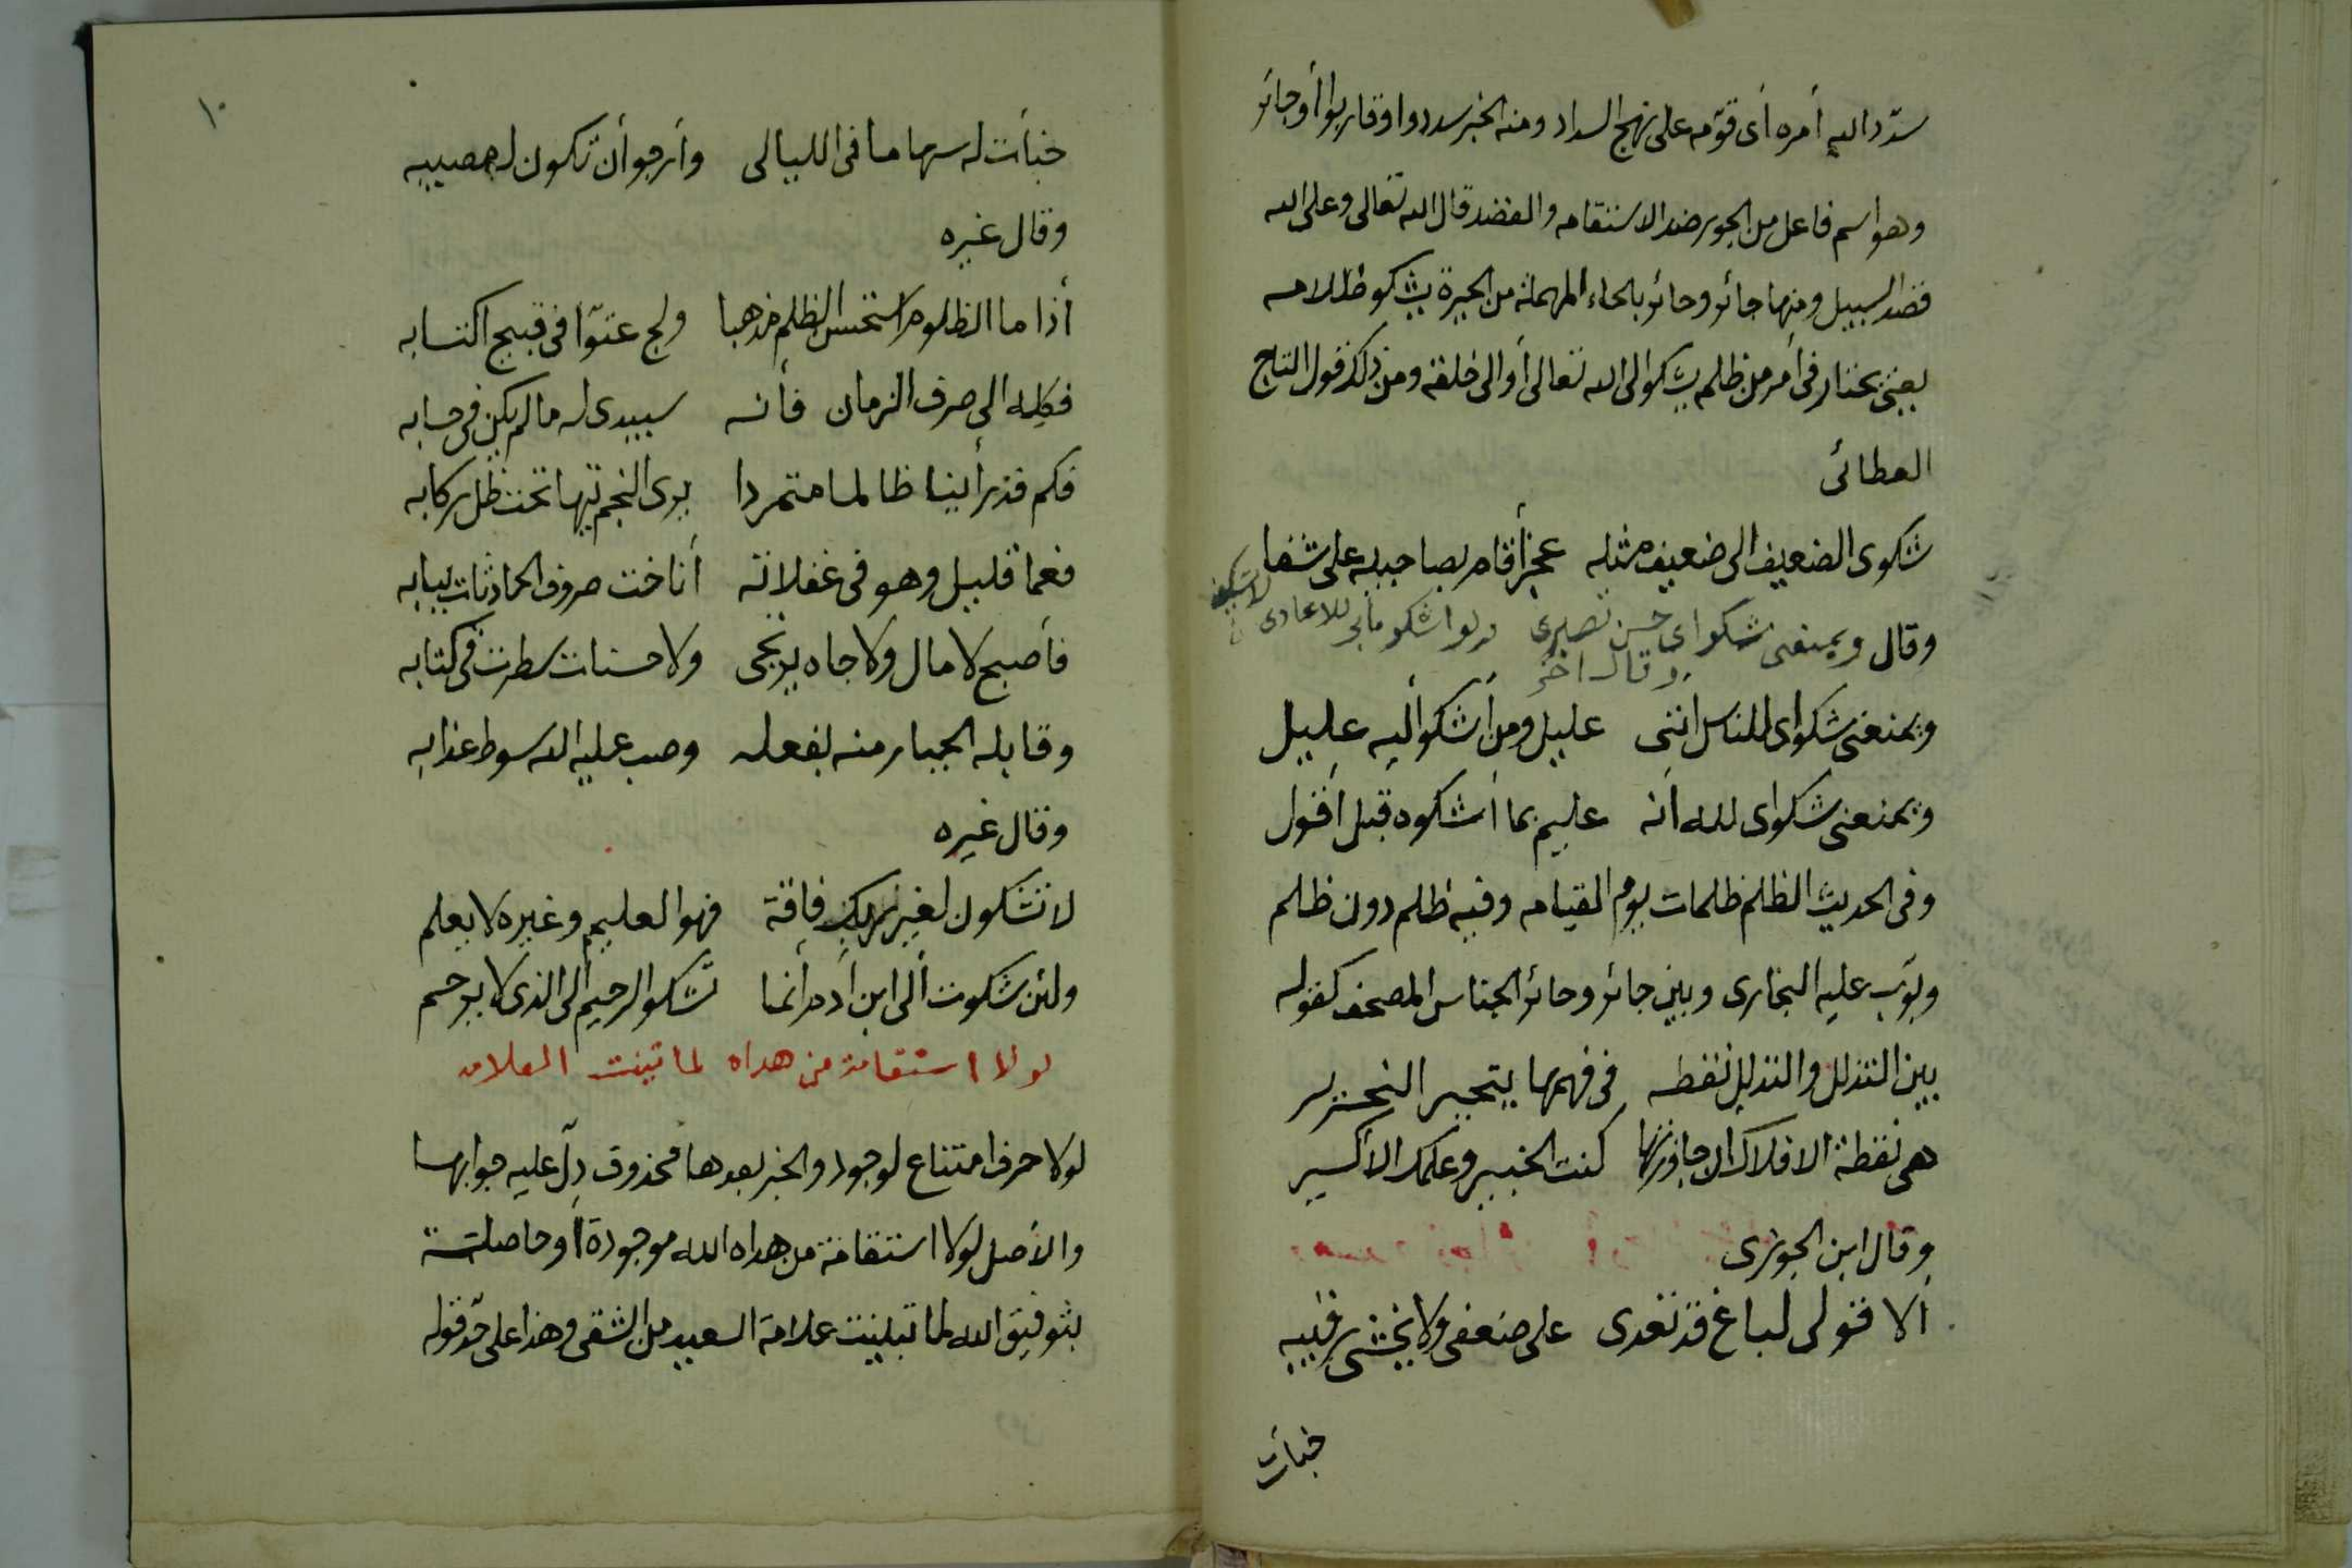 سدّد اليه أمره أى قوّمه على نهج السداد ومنه الخبر سددوا وقاربوا أو جائر
وهو اسم فاعل من الجور ضد الاستقامه والقصد قال الله تعالى وعلى الله
قصد السبيل ومنها جائر وحائر بالحاء المهملة من الحيرة يشكو ظلامه
يعنى يحتار فى أمر من ظلم يشكو الى الله تعالى أو الى خلقه ومن ذلك قول التاج
العطائى
شكوى الضعيف الى ضعيف مثله عجز أقام بصاحبيه على شفا
وقال ويمنعنى شكواى حسن تصبرى ولو اشكو مابى للاعادى
وقال اخر
ويمنعنى شكواى للناس اننى عليل ومن أشكو أليه عليل
ويمنعنى شكواى لله أنه عليم بما أشكوه قبل أقول
وفى الحديث الظلم ظلمات يوم القيامه وفيه ظلم دون ظلم
وبوّب عليه البخارى وبين جائر وحائر الجناس المصحف كقوله
بين التذلل والتدلل نقطه فى فهمها يتحير النحرير
هى نقطة الافلاك ان جاوزتها كنت الخبير وعلمك الاكسير
وقال ابن الجوزى
ألا قولى لباغ قد تعدى على ضعفى ولا يخشى رقيبه
خبأت
١٠
خبأت له سهاما فى الليالى وأرجو أن تكون له مصيبه
وقال غيره
أذا ما الظلوم استحسن الظلم مذهبا ولج عتوّا فى قبيح اكتسابه
فكله الى صرف الزمان فأنه سيبدى له ما لم يكن فى حسابه
فكم قد رأينا ظالما متمردا يرى النجم تيها تحت ظل ركابه
فعما قليل وهو فى غفلاته أناخت صروف الحادثات ببابه
فأصبح لا مال ولا جاه يرتجى ولا حسنات سطرت فى كتابه
وقابله الجبار منه بفعله وصب عليه الله سوط عذابه
وقال غيره
لا تشكون لغير ربك فاقة فهو العليم وغيره لا يعلم
ولئن شكوت ألى ابن أدم أنما تشكو الرحيم الى الذى لا يرحم
لولا استقامة من هداه لما تبينت العلامه
لولا حرف امتناع لوجود والخبر بعدها محذوف دلّ عليه جوابها
والأصل لولا استقامة من هداه الله موجودة أو حاصلة
بتوفيق الله لما تبينت علامة السعيد من الشقى وهذا على حدّ قوله